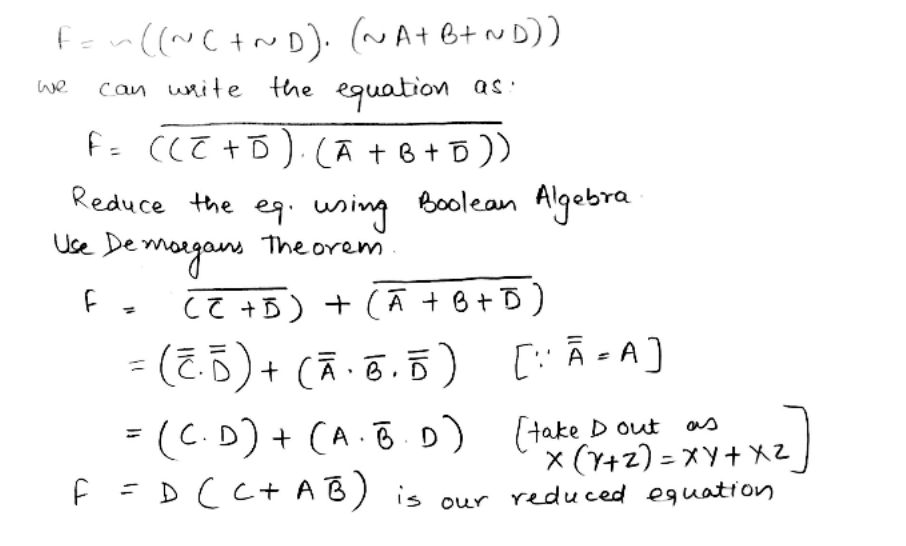 F = ~((~C + ~D). (~A + B + ~D))
we can write the equation as:
F = \overline{((C̅ + D̅). (A̅ + B + D̅))}
Reduce the eq. using Boolean Algebra.
Use Demorgans Theorem.
F = \overline{(C̅ + D̅)} + \overline{(A̅ + B + D̅)}
= (C̿. D̿) + (A̿ . B̅ . D̿) [∵ A̿ = A]
= (C. D) + (A. B̅. D) [take D out as
X (Y+Z) = XY + XZ]
F = D (C + A B̅) is our reduced equation